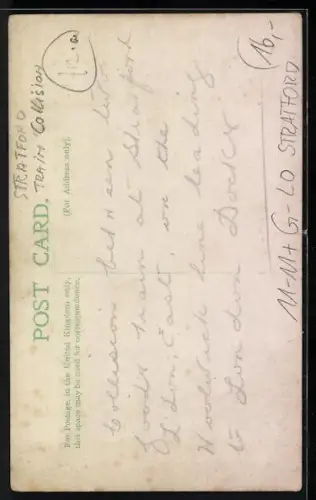 STRATFORD
TRAIN Collision
12.-
16,-
POST CARD.
For Postage, in the United Kingdom only,
this space may be used for correspondence.
(For Address only).
Collision between two
Goods train at Stratford
London, East, on the
Woolwich line leading
to London Docks
M-M+G-LO STRATFORD